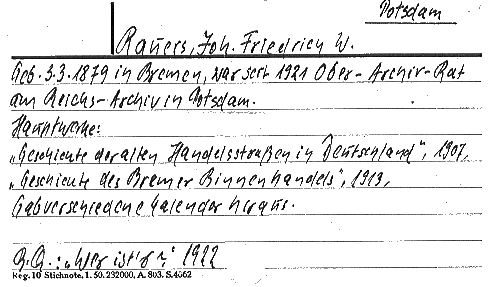 Potsdam
Rauers, Joh. Friedrich W.
Geb. 3.3.1879 in Bremen, war seit 1921 Ober-Archiv-Rat
am Reichs-Archiv in Potsdam.
Hauptwerke:
„Geschichte der alten Handelsstraßen in Deutschland", 1907,
„Geschichte des Bremer Binnenhandels", 1913,
Gab verschiedene Kalender heraus.
R.Q.: „Wer ist's?" 1922
Reg. 10 Stichnote. 1. 50. 232000, A. 803. S. 4062